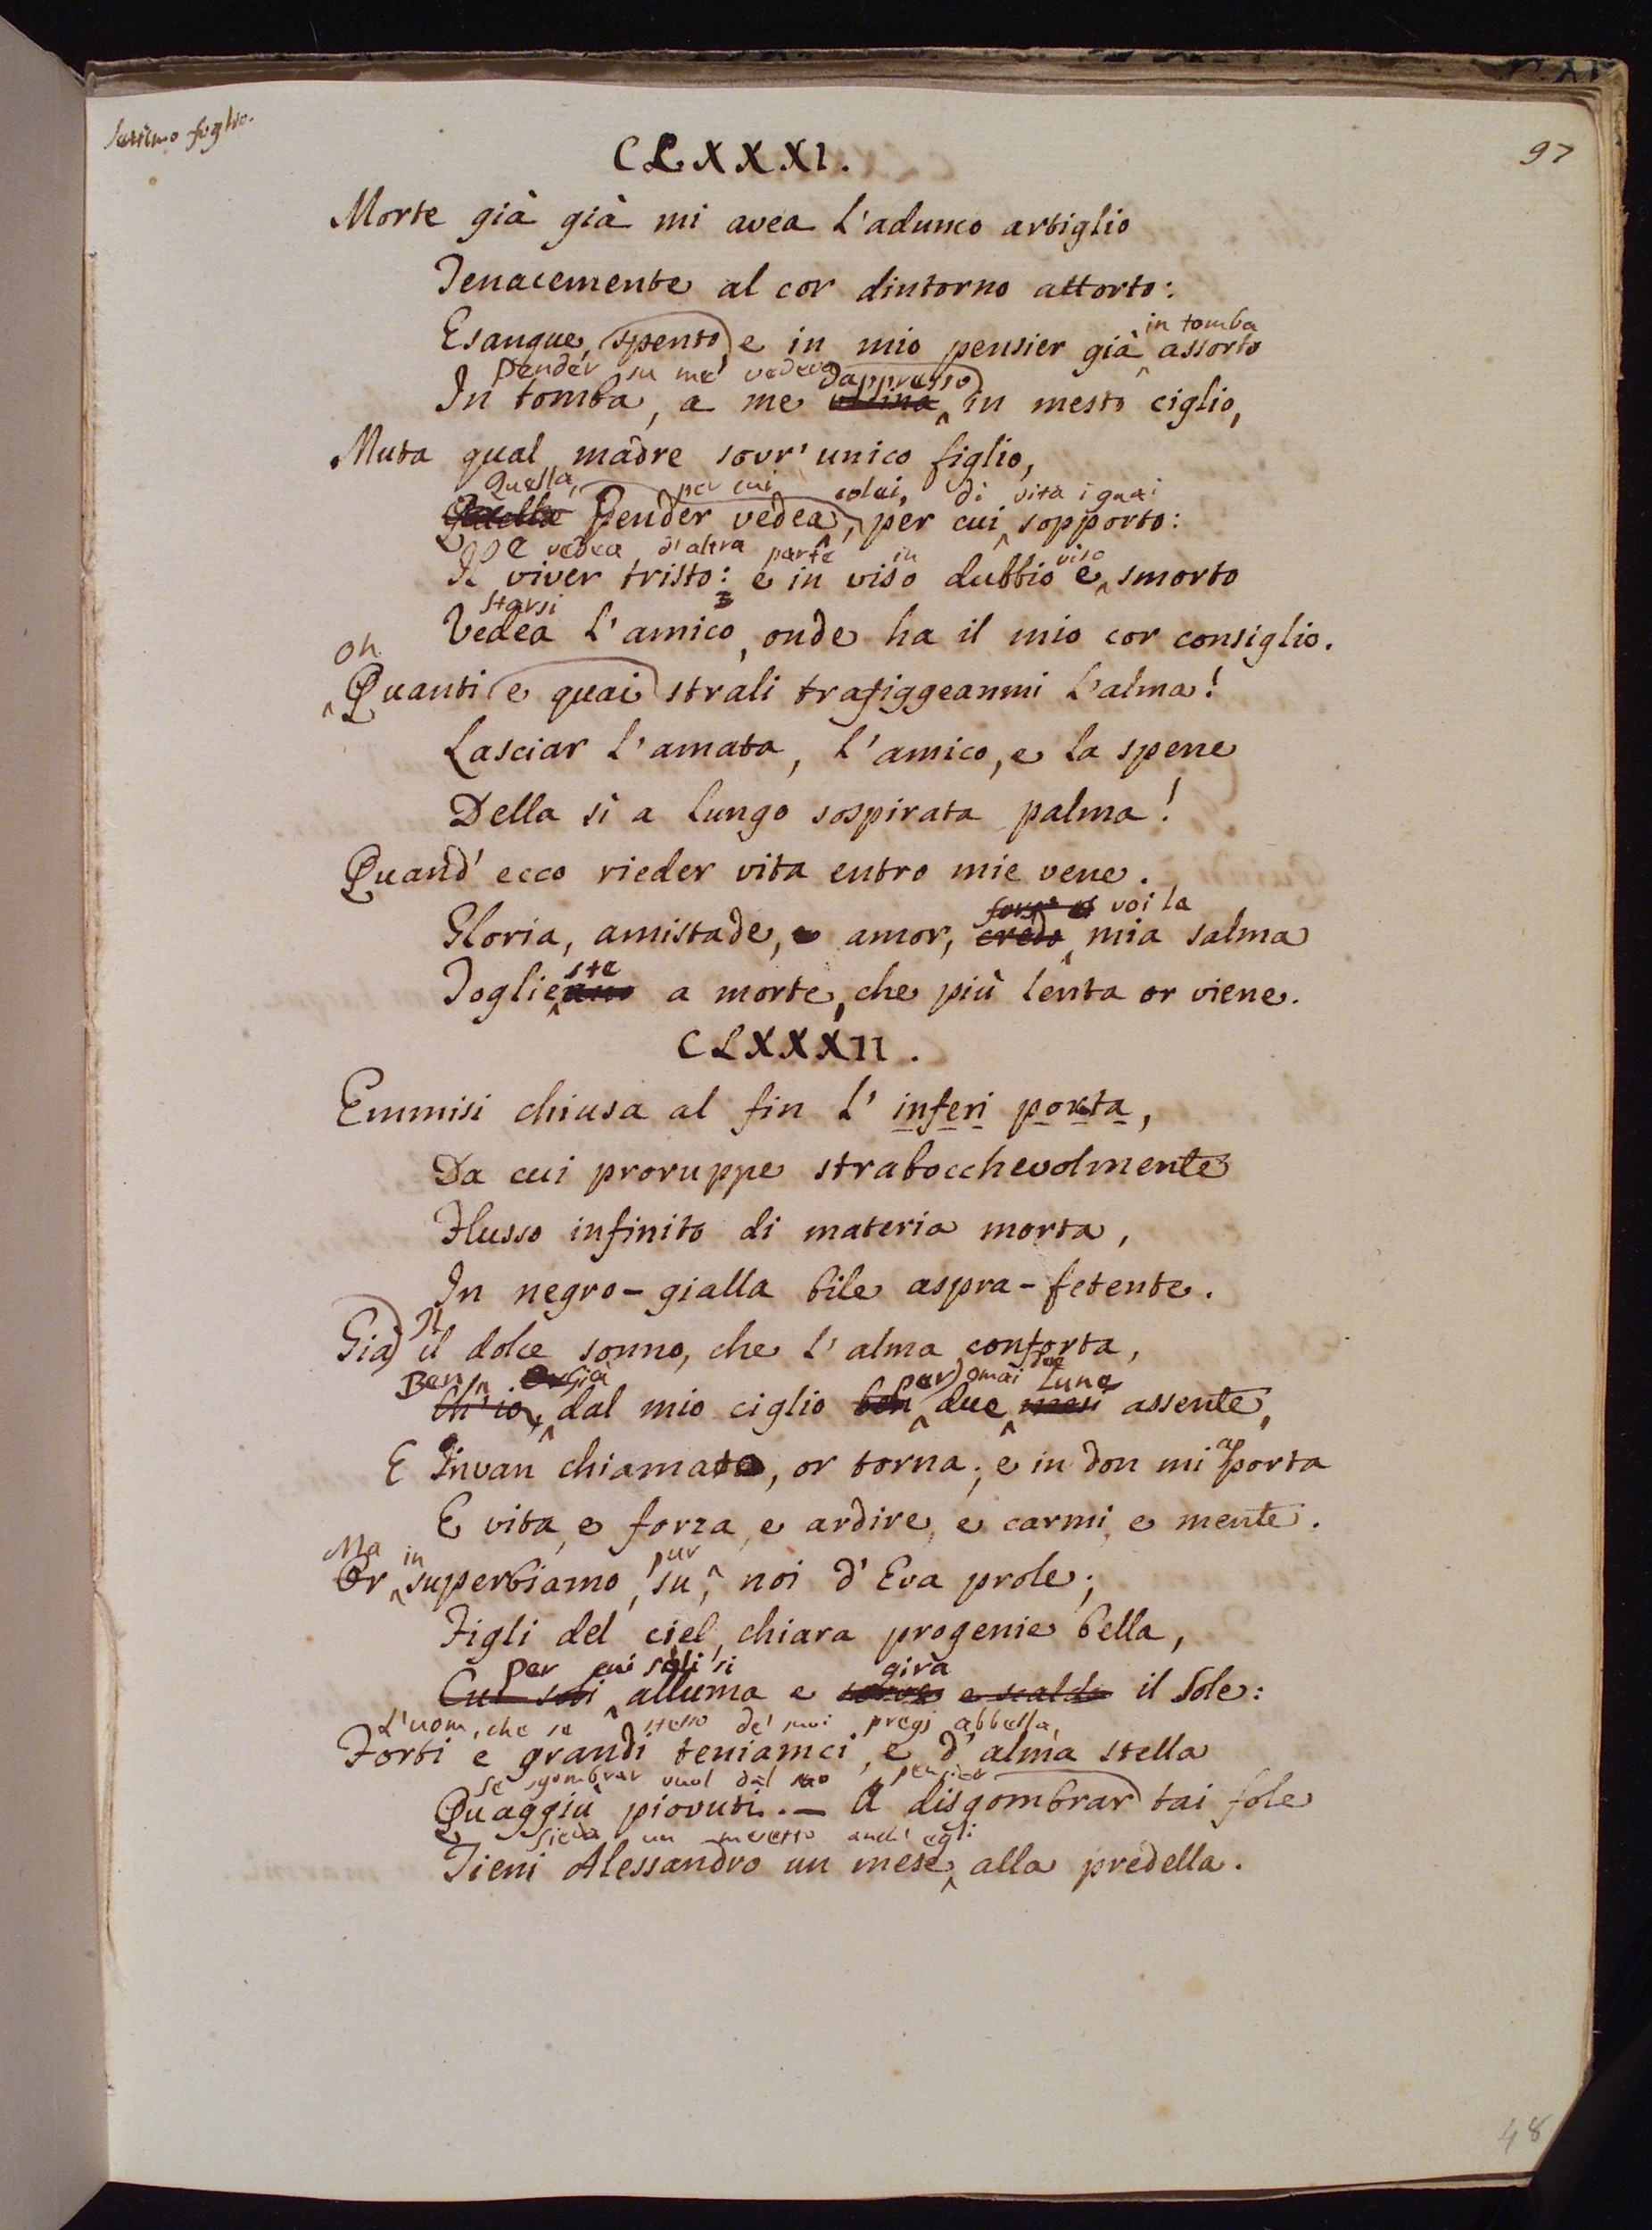 foglio.
97
CLXXXI.
Morte già già mi avea l'adunco artiglio
Tenacemente al cor dintorno attorto:
in tomba
Esangue, spento, e in mio pensier già assorto
Pender su me vedeva dappresso
In tomba, a me vicina in mesto ciglio,
Muta qual madre sovr' unico figlio,
Quella, per cui colei, di vita i guai
Quella Pender vedea, per cui sopporto:
E vedea d'altra parte in viso
Il viver tristo: e in viso dubbio e smorto
starsi
Vedea l'amico, onde ha il mio cor consiglio.
Oh
Quanti e quai strali trafiggeanmi l'alma!
Lasciar l'amata, l'amico, e la spene
Della sì a lungo sospirata palma!
Quand' ecco rieder vita entro mie vene.
forse voi la
Gloria, amistade, e amor, credo mia salma
ste
Toglieano a morte, che più lenta or viene.
CLXXXII.
Emmisi chiusa al fin l' inferi porta,
Da cui proruppe strabocchevolmente
Flusso infinito di materia morta,
In negro-gialla bile aspra-fetente.
Il
Già il dolce sonno, che l'alma conforta,
Ben Già per omai due Lune
Ch'io, dal mio ciglio ben due mesi assente,
E Invan chiamato, or torna; e in don mi apporta
E vita, e forza, e ardire, e carmi, e mente.
Ma in pur
Or superbiamo, su, noi d'Eva prole;
Figli del ciel, chiara progenie bella,
Per cui soli si gira
Cui soli alluma e e scalda il Sole:
L'uom, che se stesso de' suoi pregj abbella,
Forti e grandi teniamci, e d'alma stella
Se sgombrar vuol dal suo pensier
Quaggiù piovuti. – A disgombrar tai fole
Sieda un mesetto anch' egli
Tieni Alessandro un mese alla predella.
48